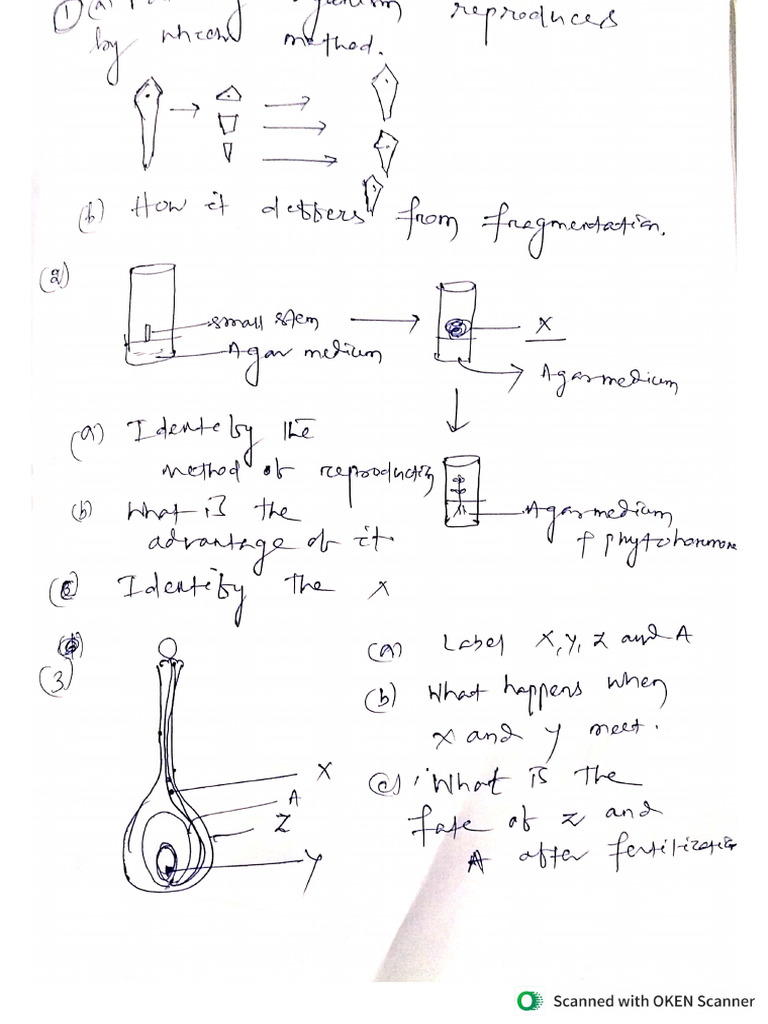 ① (a)
reproduces
by which method.
(b) How it deffers from fragmentation.
(2)
small stem
Agar medium
X
Agar medium
(a) Identeby the
method of reproduction
(b) What is the
advantage of it
Agar medium
+ phytohormone
(c) Identiby the X
(3)
(a) Label X, Y, Z and A
(b) What happens when
X and Y meet.
(c) What is the
fate of Z and
A after fertilization
X
A
Z
Y
Scanned with OKEN Scanner